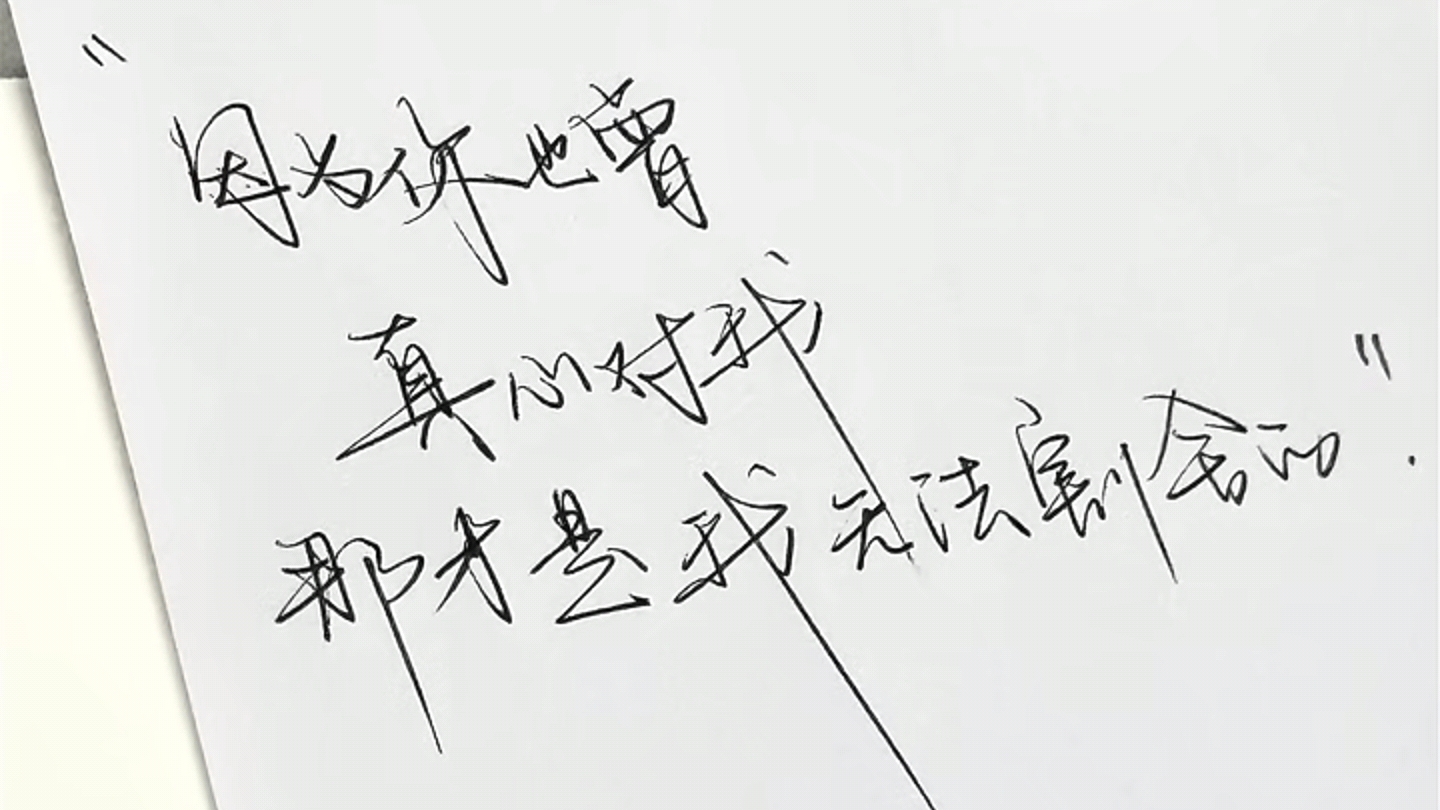 "因为你也曾
真心对我
那才是我无法割舍的".